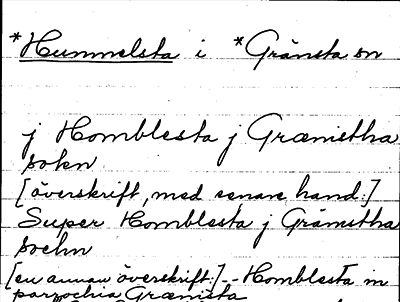 *Hummelsta i *Gränsta sn
j Homblesta j Grænistha
sokn
[överskrift, med senare hand:]
Super Homblesta j Gränistha
sochn
[en annan överskrift:] -- Homblesta in
parrochia Grænista